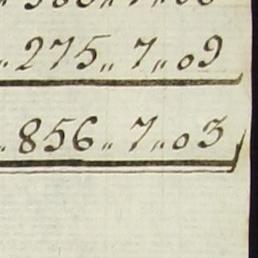 275,, 7,, 09
856,, 7,, 03